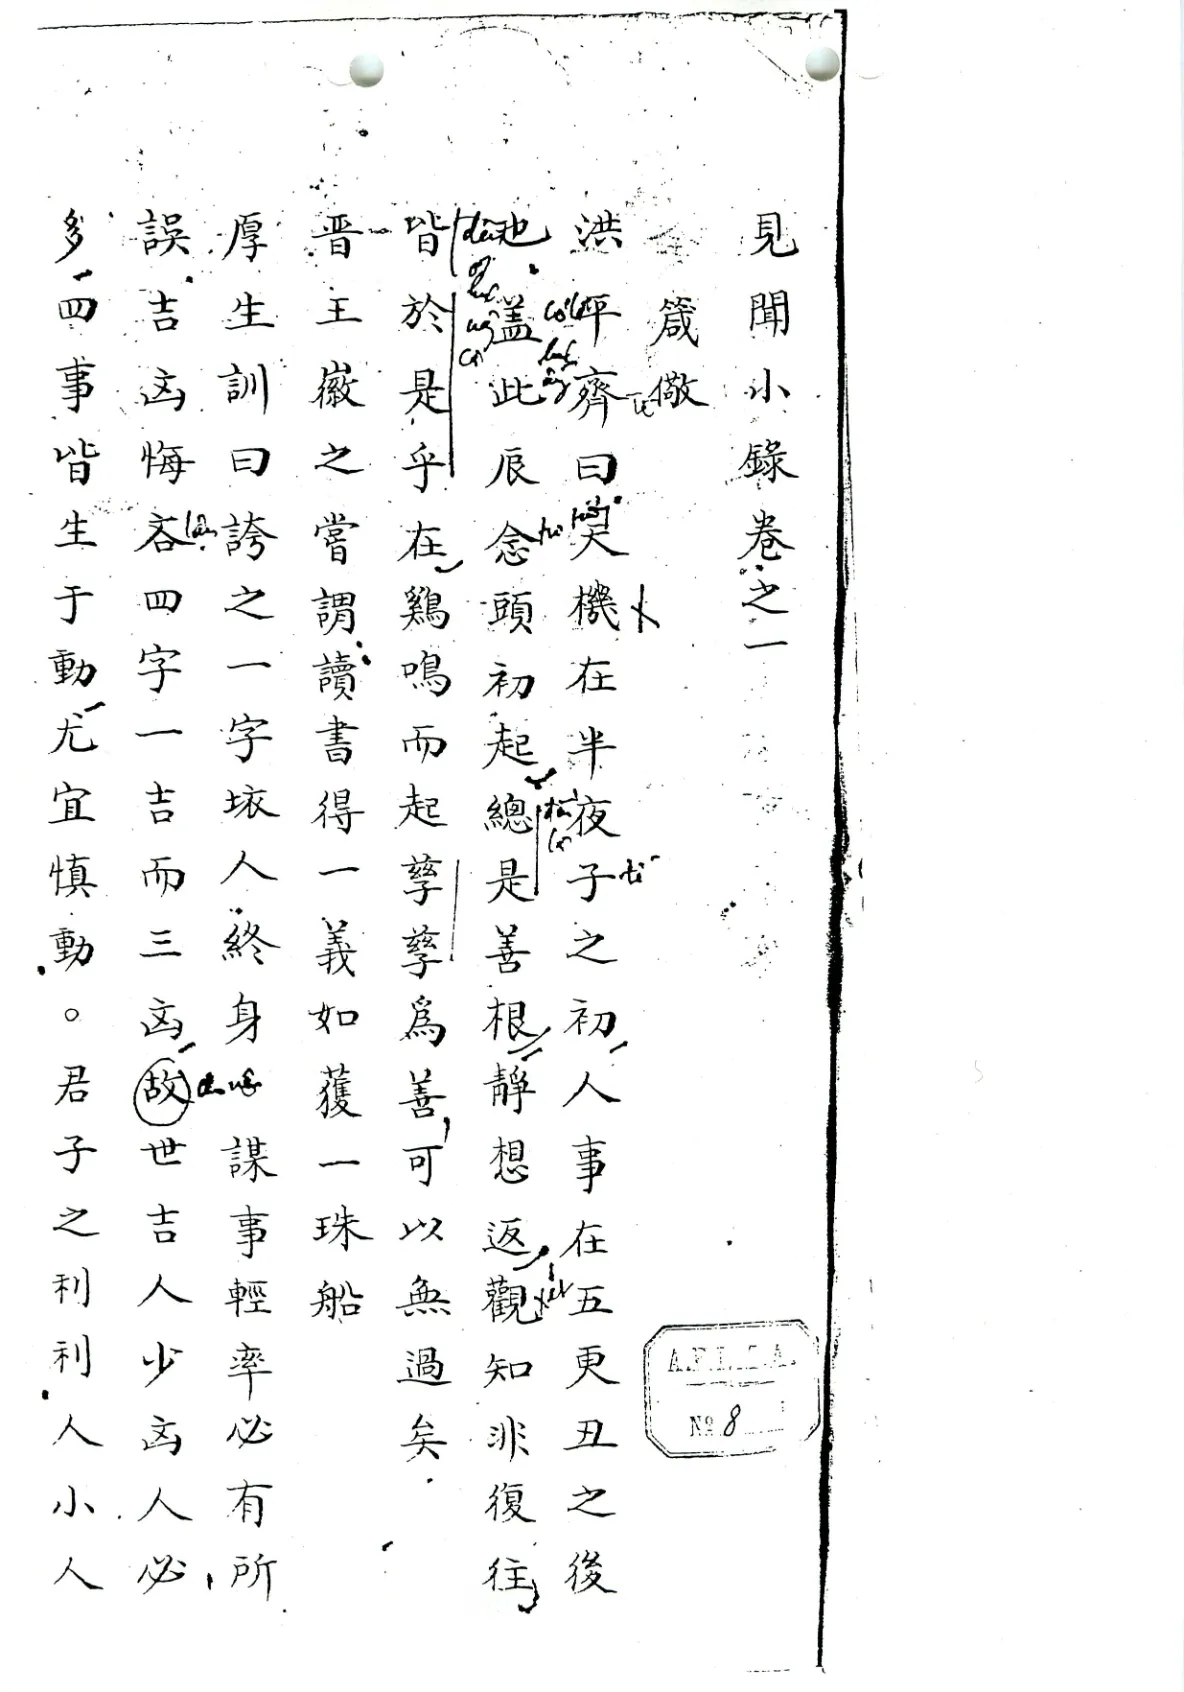 見聞小錄卷之一
箴儆
洪坪齊曰天機在半夜子之初人事在五更丑之後
也盖此辰念頭初起總是善根靜想返觀知非復往
皆於是乎在鷄鳴而起孳孳爲善可以無過矣
晋王徽之嘗謂讀書得一義如獲一珠船
厚生訓曰誇之一字坏人終身 謀事輕率必有所
誤吉凶悔吝四字一吉而三凶故世吉人少凶人必
多四事皆生于動尤宜慎動。君子之利利人小人
A.F.I.M.A.
№ 8